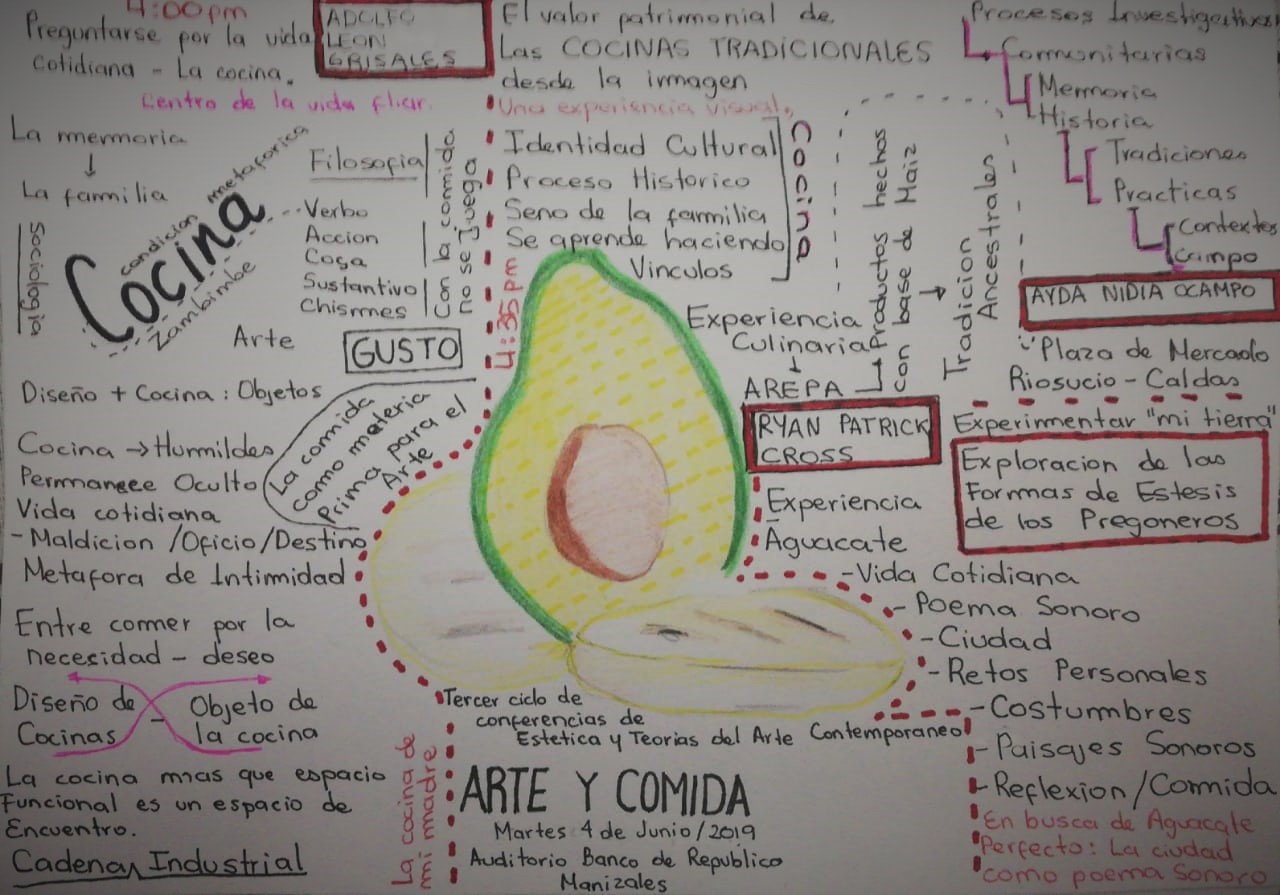 4:00pm
Preguntarse por la vida
cotidiana - La cocina.
Centro de la vida fliar.
ADOLFO
LEON
GRISALES
La memoria
↓
La familia
Sociologia
condicion metaforica
Cocina
Zambimbe
Filosofia
Verbo
Accion
Cosa
Sustantivo
Chismes
Con la comida
no se juega
Arte
GUSTO
Diseño + Cocina : Objetos
La comida
como meteria
Prima para el
Arte
Cocina → Humildes
Permanece Oculto
Vida cotidiana
- Maldicion /Oficio/Destino
Metafora de Intimidad
Entre comer por la
necesidad - deseo
Diseño de - Objeto de
Cocinas la cocina
La cocina mas que espacio
Funcional es un espacio de
Encuentro.
Cadena Industrial
La cocina de
mi madre
El valor patrimonial de
Las COCINAS TRADICIONALES
desde la imagen
Una experiencia visual.
Identidad Cultural
Proceso Historico
Seno de la familia
Se aprende haciendo
Vinculos
Cocina
4:35 pm
Experiencia
Culinaria
↓
AREPA
Productos hechos
con base de Maiz
→ Tradicion
Ancestral
RYAN PATRICK
CROSS
Experiencia
Aguacate
- Vida Cotidiana
- Poema Sonoro
- Ciudad
- Retos Personales
- Costumbres
- Paisajes Sonoros
- Reflexion/Comida
En busca de Aguacate
Perfecto: La ciudad
como poema Sonoro
Procesos Investigativos
Comunitarias
Memoria
Historia
Tradiciones
Practicas
Contextos
Campo
AYDA NIDIA OCAMPO
Plaza de Mercado
Riosucio - Caldas
Experimentar "mi tierra"
Exploracion de las
Formas de Estesis
de los Pregoneros
Tercer ciclo de
conferencias de
Estetica y Teorias del Arte Contemporaneo
ARTE Y COMIDA
Martes 4 de Junio/2019
Auditorio Banco de Republica
Manizales